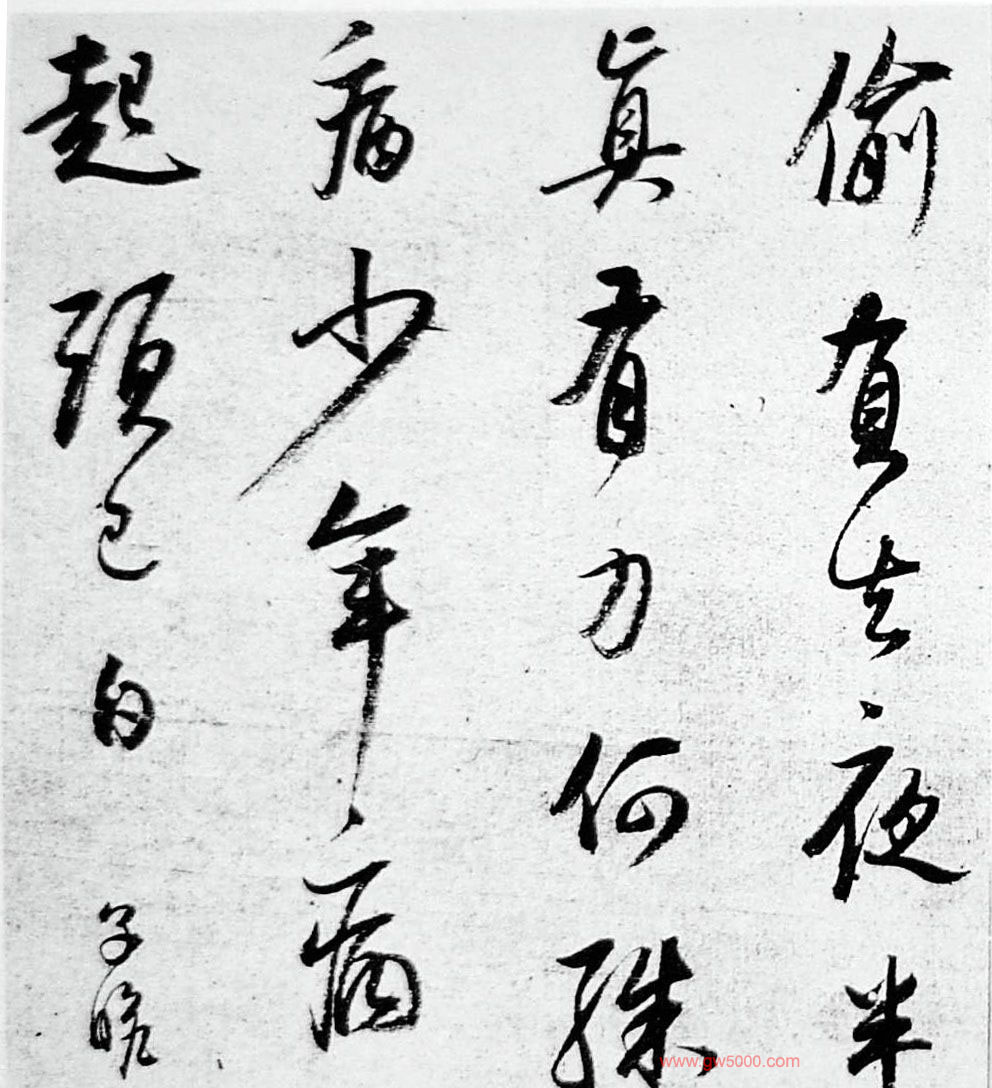 偷負去夜半
眞有力何殊
病少年病
起頭已白
子
www.gw5000.com